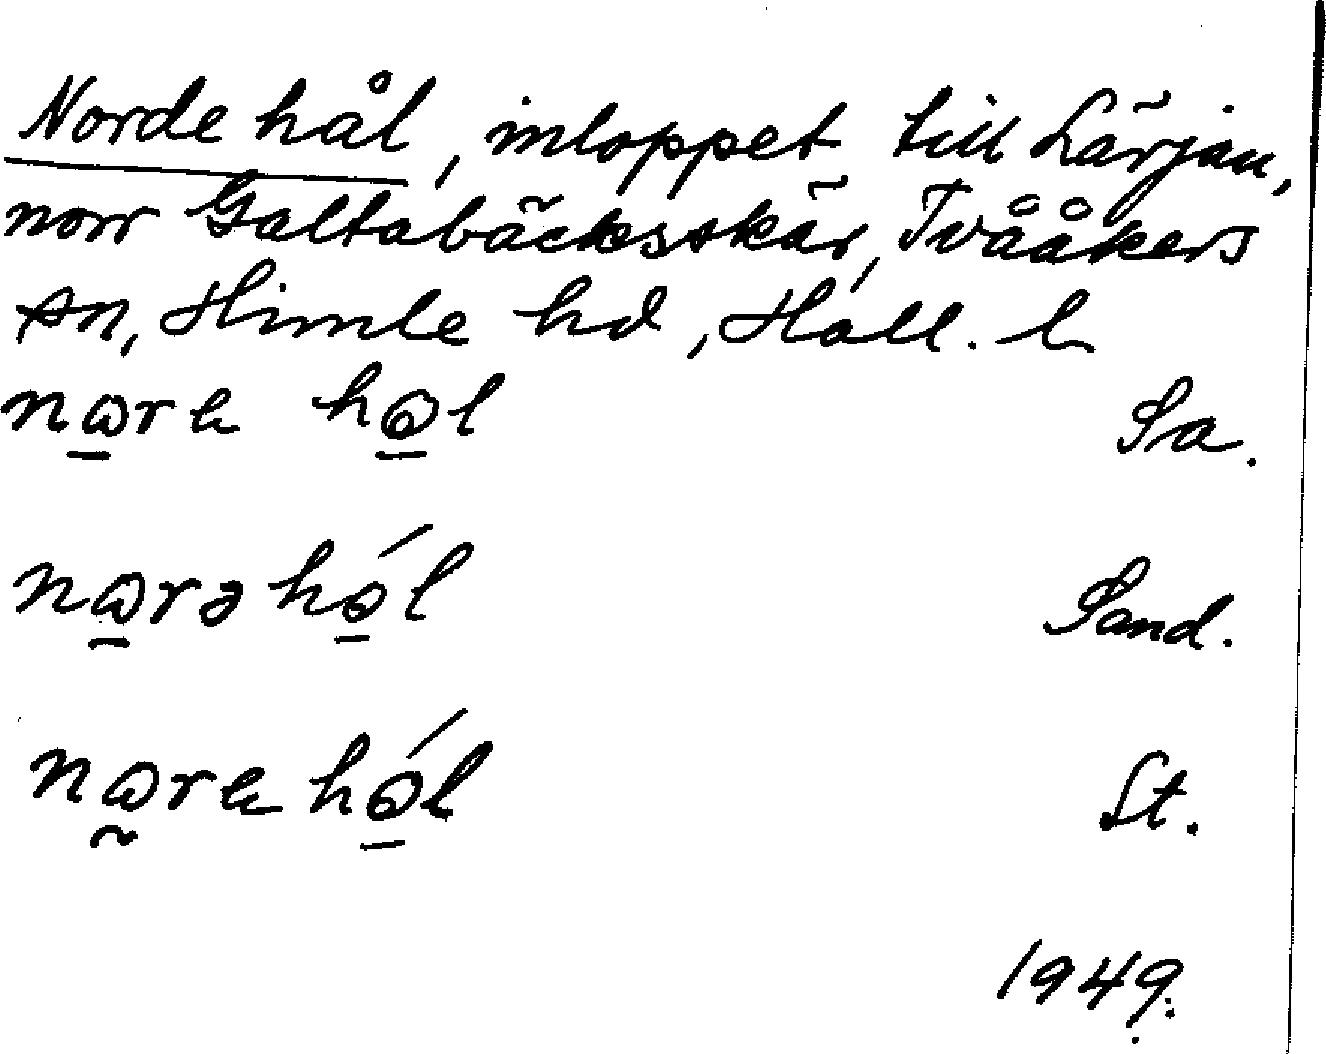 Norde hål, inloppet till Lärjan,
norr Galtabäcksskär, Tvååkers
sn, Himle hd, Hall. l
nɷ̱re hɷ̱l Sa.
nɷ̱rə hɷ̱́l Sand.
nɷ̰re hɷ̱́l St.
1949.